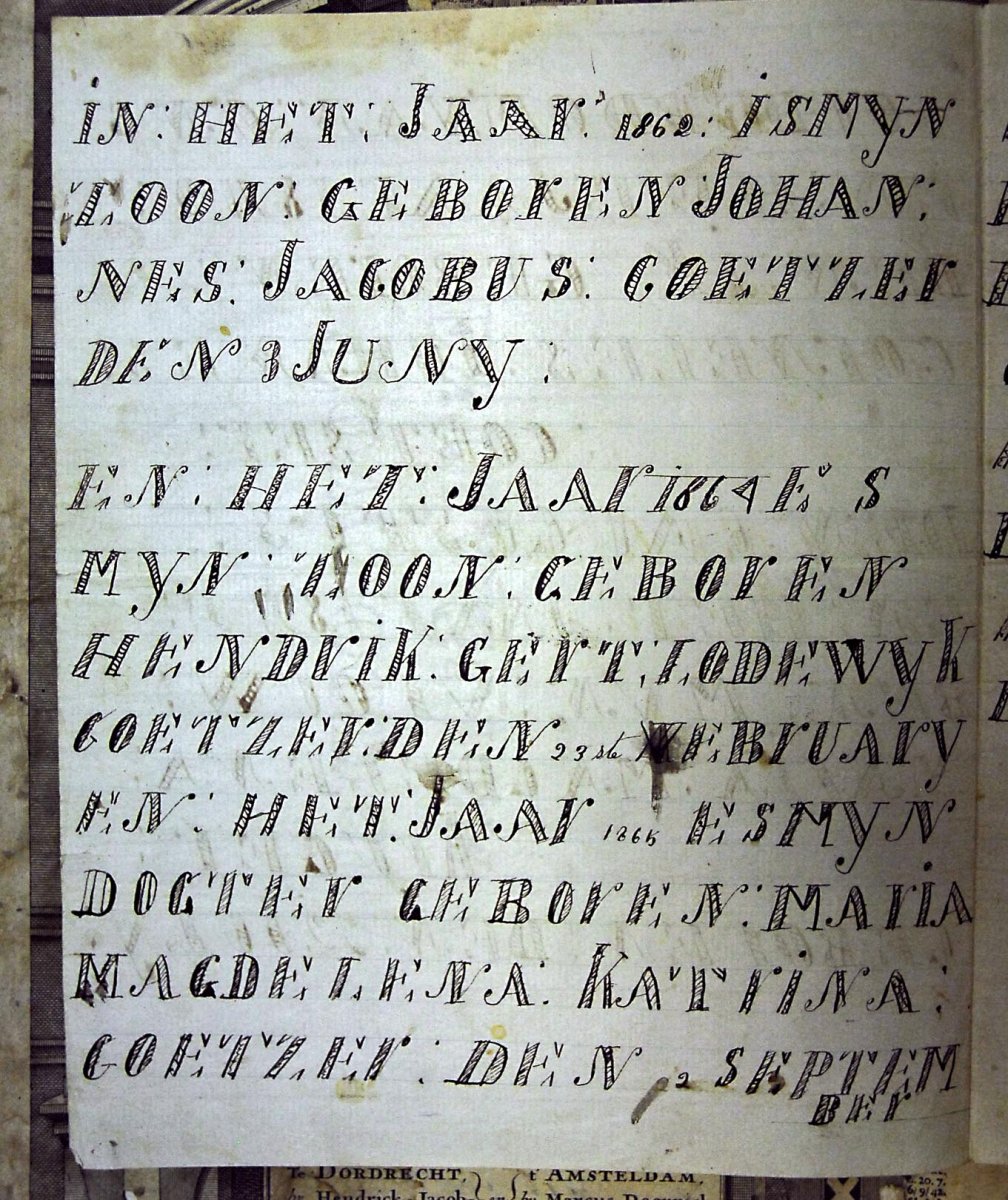 iN: HET: JAAr: 1862: ISMYN
ZOON: GEBOrEN JOHAN:
NES: JACOBUS: COETZEr
DEN 3 JUNY:
EN: HET: JAAr 1864 ES
MYN: ZOON: GEBOrEN
HENDriK: GErT: LODEWYK
COETZEr: DEN 23ste FEBrUArY
EN: HET: JAAr 1865 ESMYN
DOGTEr GEBOrEN: MAriA
MAGDELENA: KATriNA:
COETZEr: DEN 2 SEPTEM
BEr
Te DORDRECHT, t' AMSTELDAM,
by Hendrick Jacob en by Marcus